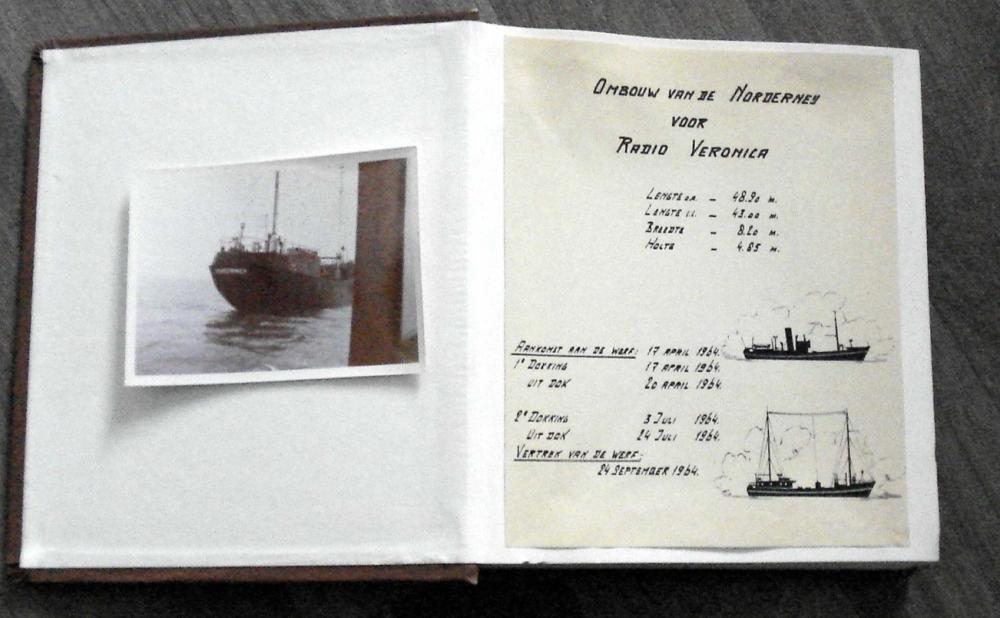 OMBOUW VAN DE NORDERNEY
VOOR
RADIO VERONICA
LENGTE o.a. – 48.90 m.
LENGTE l.l. – 43.00 m.
BREEDTE – 8.20 m.
HOLTE – 4.85 m.
AANKOMST AAN DE WERF: 17 APRIL 1964.
1e DOKKING 17 APRIL 1964.
UIT DOK 20 APRIL 1964.
2e DOKKING 3 JULI 1964.
UIT DOK 24 JULI 1964.
VERTREK VAN DE WERF:
24 SEPTEMBER 1964.